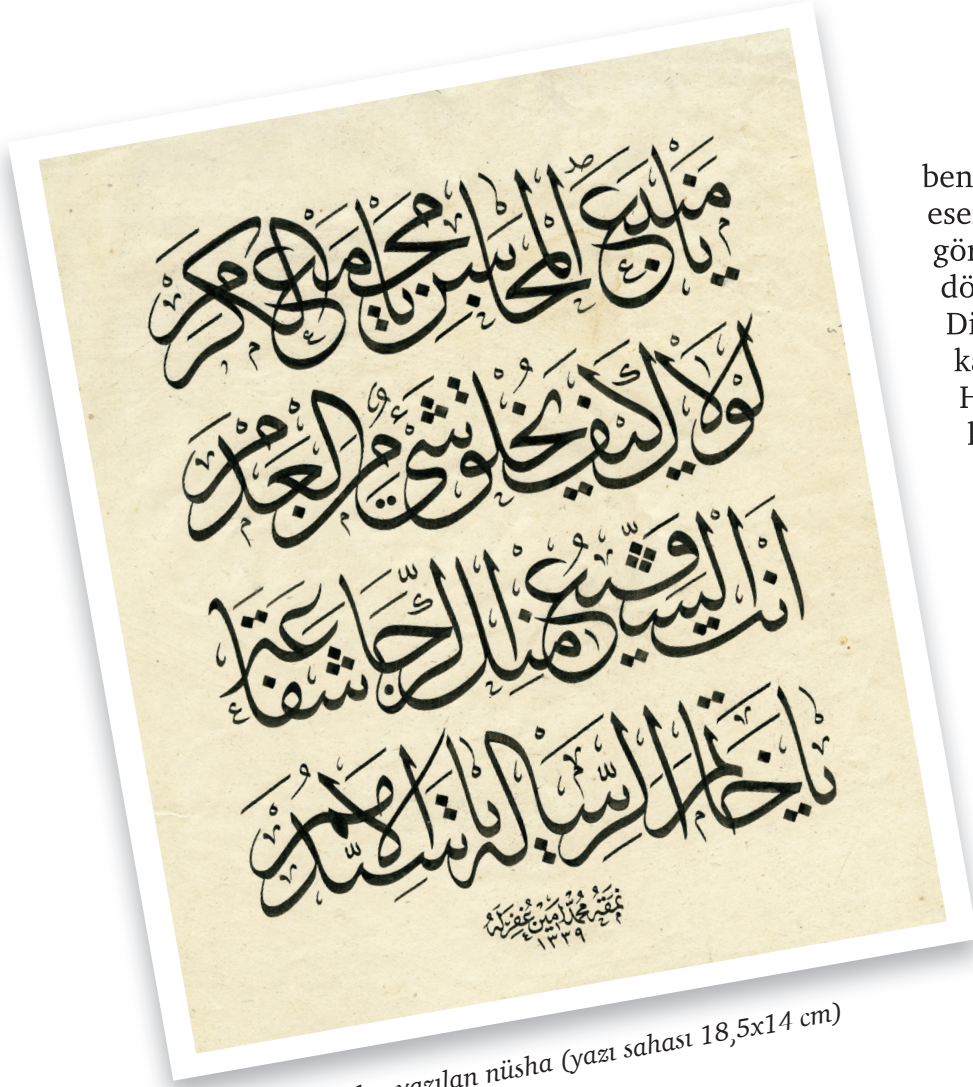 يا منبع المحاسن يا مجمع الكرم
لولاك كيف يخلق شيء من العدم
انت الشفيع الرجا شفاعة
يا خاتم الرسالة يا سيد الامم
نمقه محمد امين غفر له
١٣٣٩
yazılan nüsha (yazı sahası 18,5x14 cm)
ben
ese
gör
dö
Di
ka
H